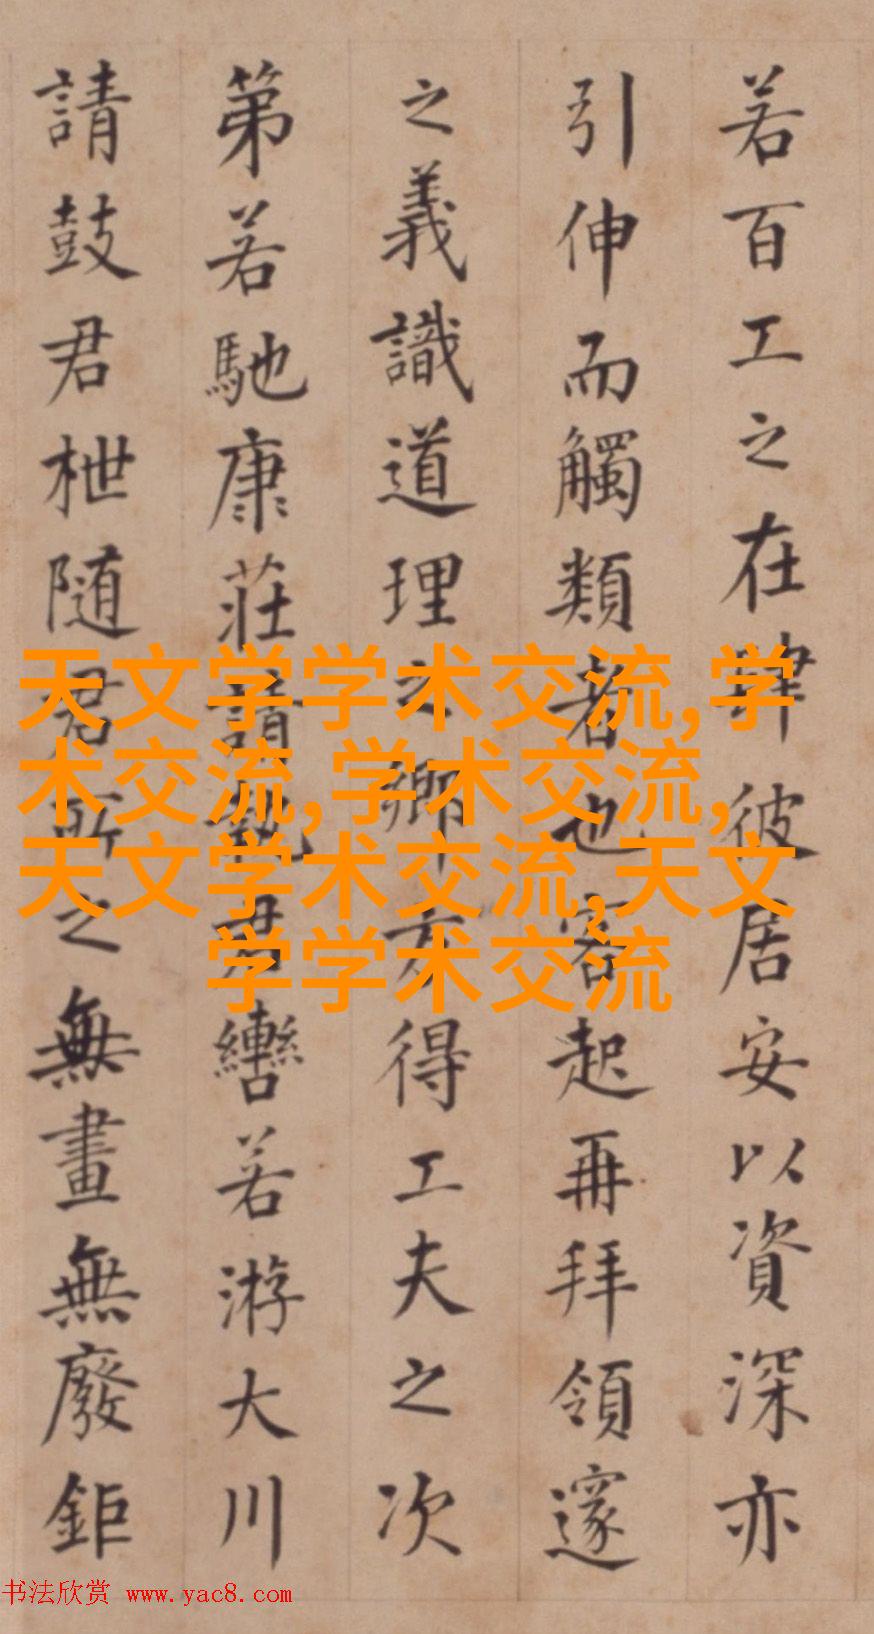 若百工之在肆彼居安以資深亦
引伸而觸類者也客起再拜領邃
之義識道理之鄉方得工夫之次
第若馳康莊請執君轡若游大川
請鼓君枻随君所之無畫無廢鉅
天文学学术交流,学
术交流,学术交流,
天文学术交流,天文
学学术交流
书法欣赏 www.yac8.com